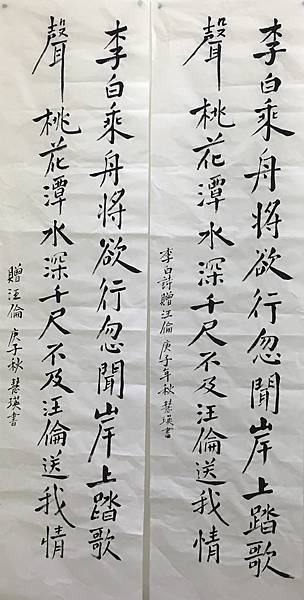 李白乘舟將欲行忽聞岸上踏歌
聲桃花潭水深千尺不及汪倫送我情
李白詩贈汪倫 庚子年秋 慧瑛書
李白乘舟將欲行忽聞岸上踏歌
聲桃花潭水深千尺不及汪倫送我情
贈汪倫 庚子秋 慧瑛書